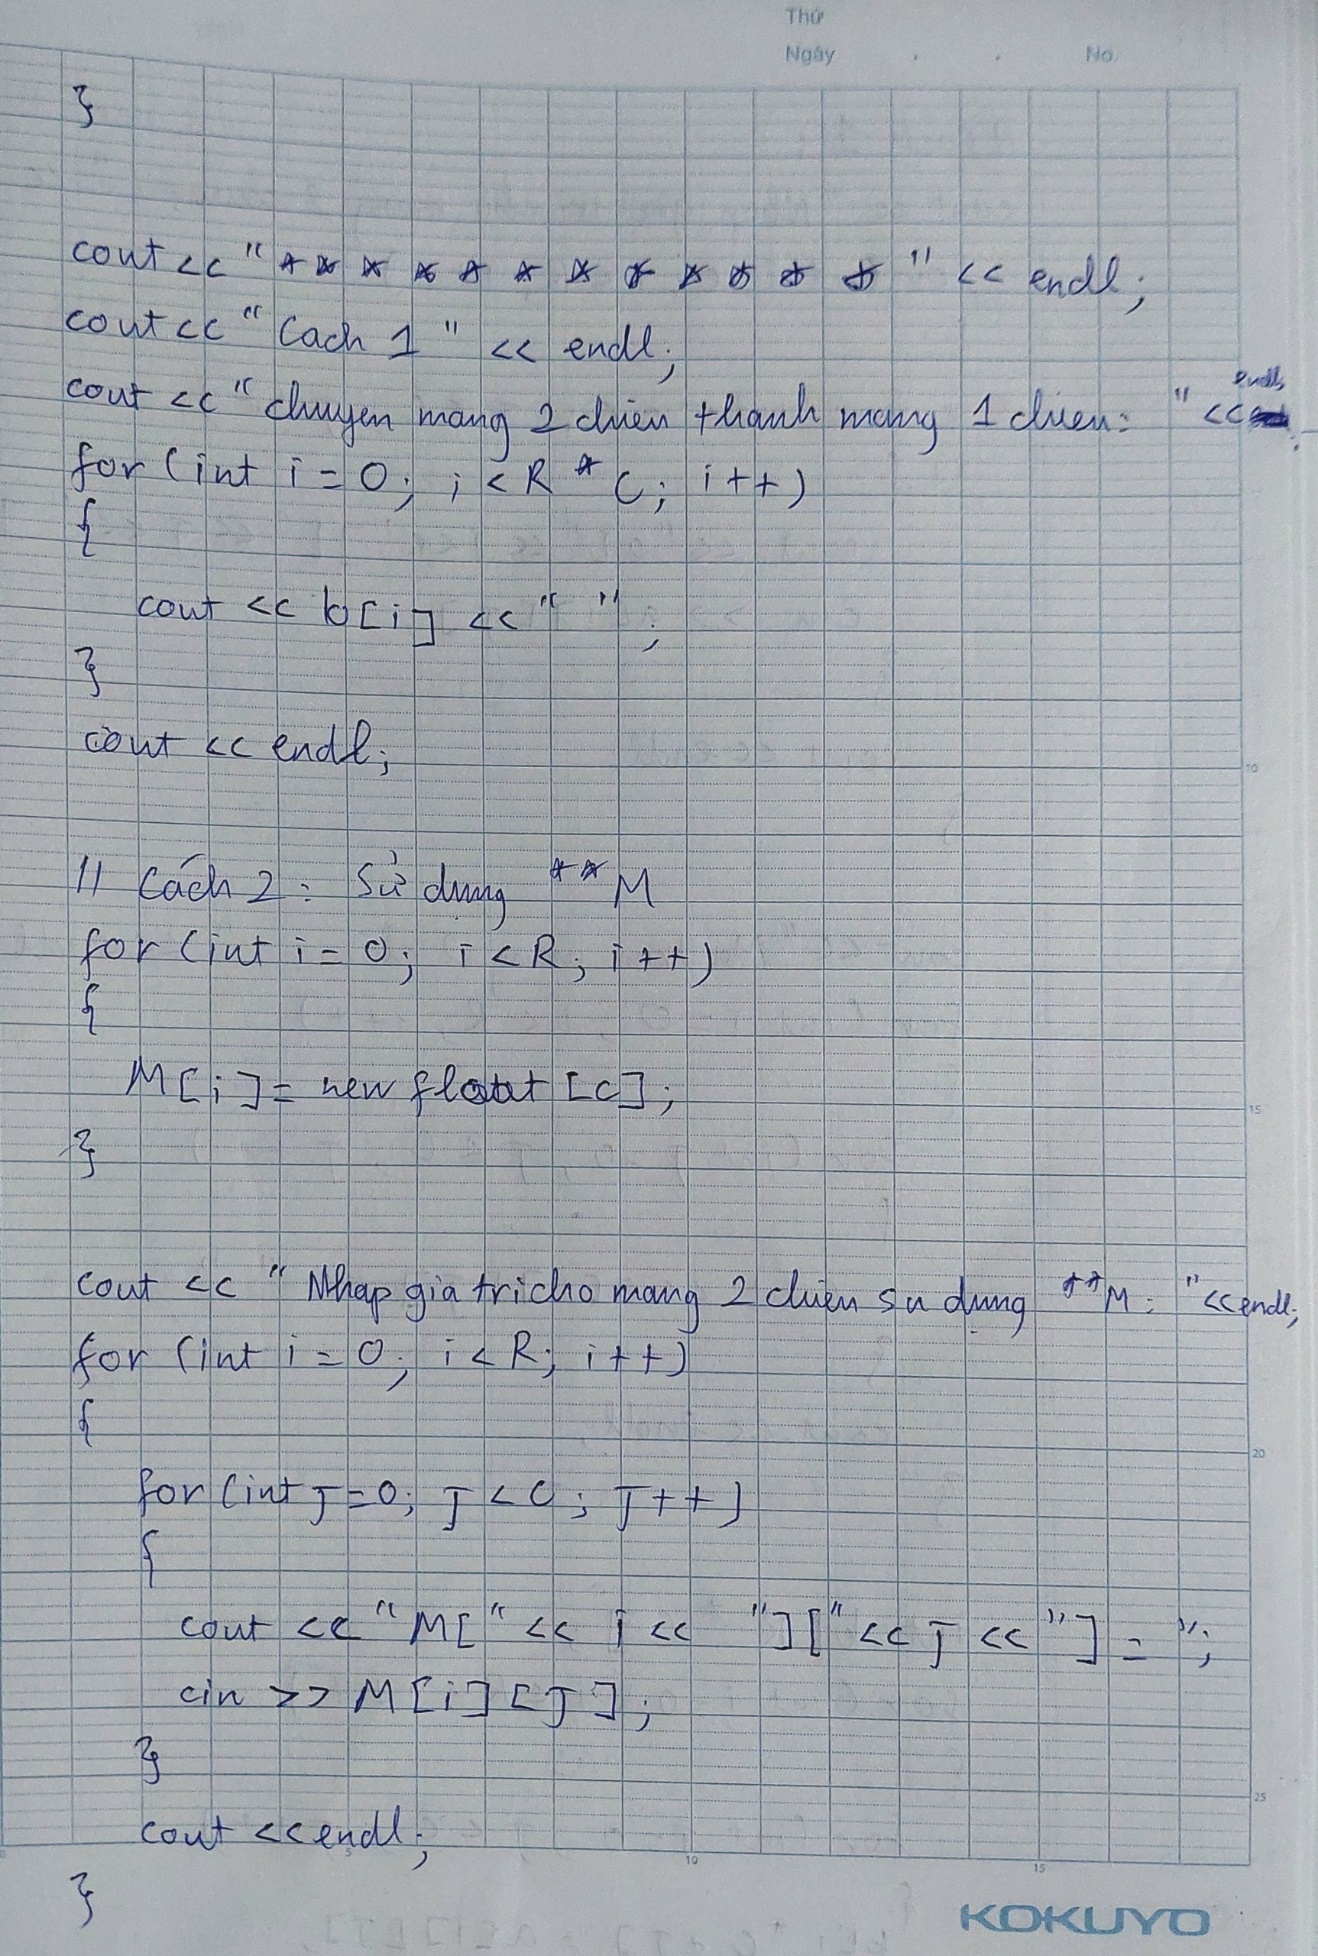 Thứ
Ngày . . No.
}
cout << "* * * * * * * * * * * *" << endl;
cout << "Cach 1" << endl;
cout << "chuyen mang 2 chien thanh mang 1 chien: " << endl;
for (int i = 0; i < R * C; i++)
{
cout << b[i] << " ";
}
cout << endl;
// Cách 2: Sử dung **M
for (int i = 0; i < R; i++)
{
M[i] = new float [C];
}
cout << "Nhap gia tri cho mang 2 chien su dung **M: " << endl;
for (int i = 0; i < R; i++)
{
for (int J = 0; J < C; J++)
{
cout << "M[" << i << "][" << J << "] = ";
cin >> M[i][J];
}
cout << endl;
}
10
15
20
25
5
10
15
KOKUYO